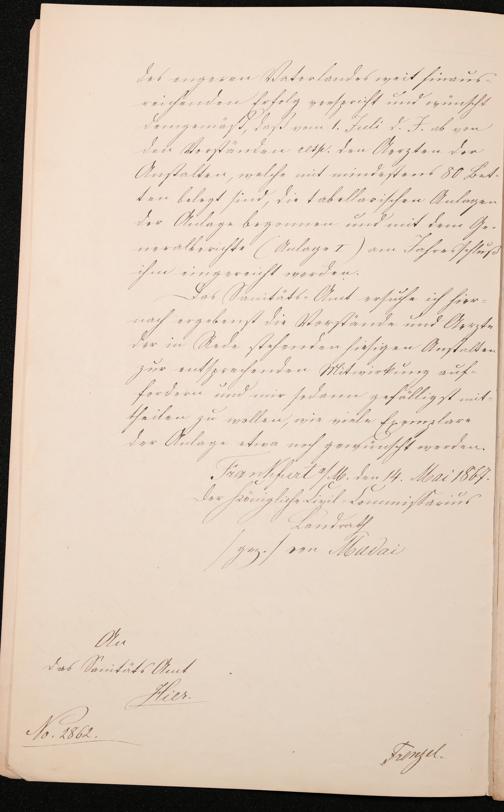 des engeren Vaterlandes weit hinaus-
reichenden Erfolg verspricht und wünscht
demgemäß, daß vom 1. Juli d. J. ab von
den Vorständen resp. den Aerzten der
Anstalten, welche mit mindestens 80 Bet-
ten belegt sind, die tabellarischen Anlagen
der Anlage begonnen und mit dem Ge-
neralberichte (Anlage I) am Jahresschluß
ihm eingereicht werden.
Das Sanitäts-Amt ersuche ich hier-
nach ergebenst die Vorstände und Aerzte
der in Rede stehenden hiesigen Anstalten
zur entsprechenden Mitwirkung auf-
fordern und mir sodann gefälligst mit-
theilen zu wollen, wie viele Exemplare
der Anlage etwa noch gewünscht werden.
Frankfurt a/M. den 14. Mai 1867.
Der Königliche Civil-Commissarius
Landrath
/gez./ von Madai
An
das Sanitäts Amt
Hier.
No. 2862.
Frenzel.